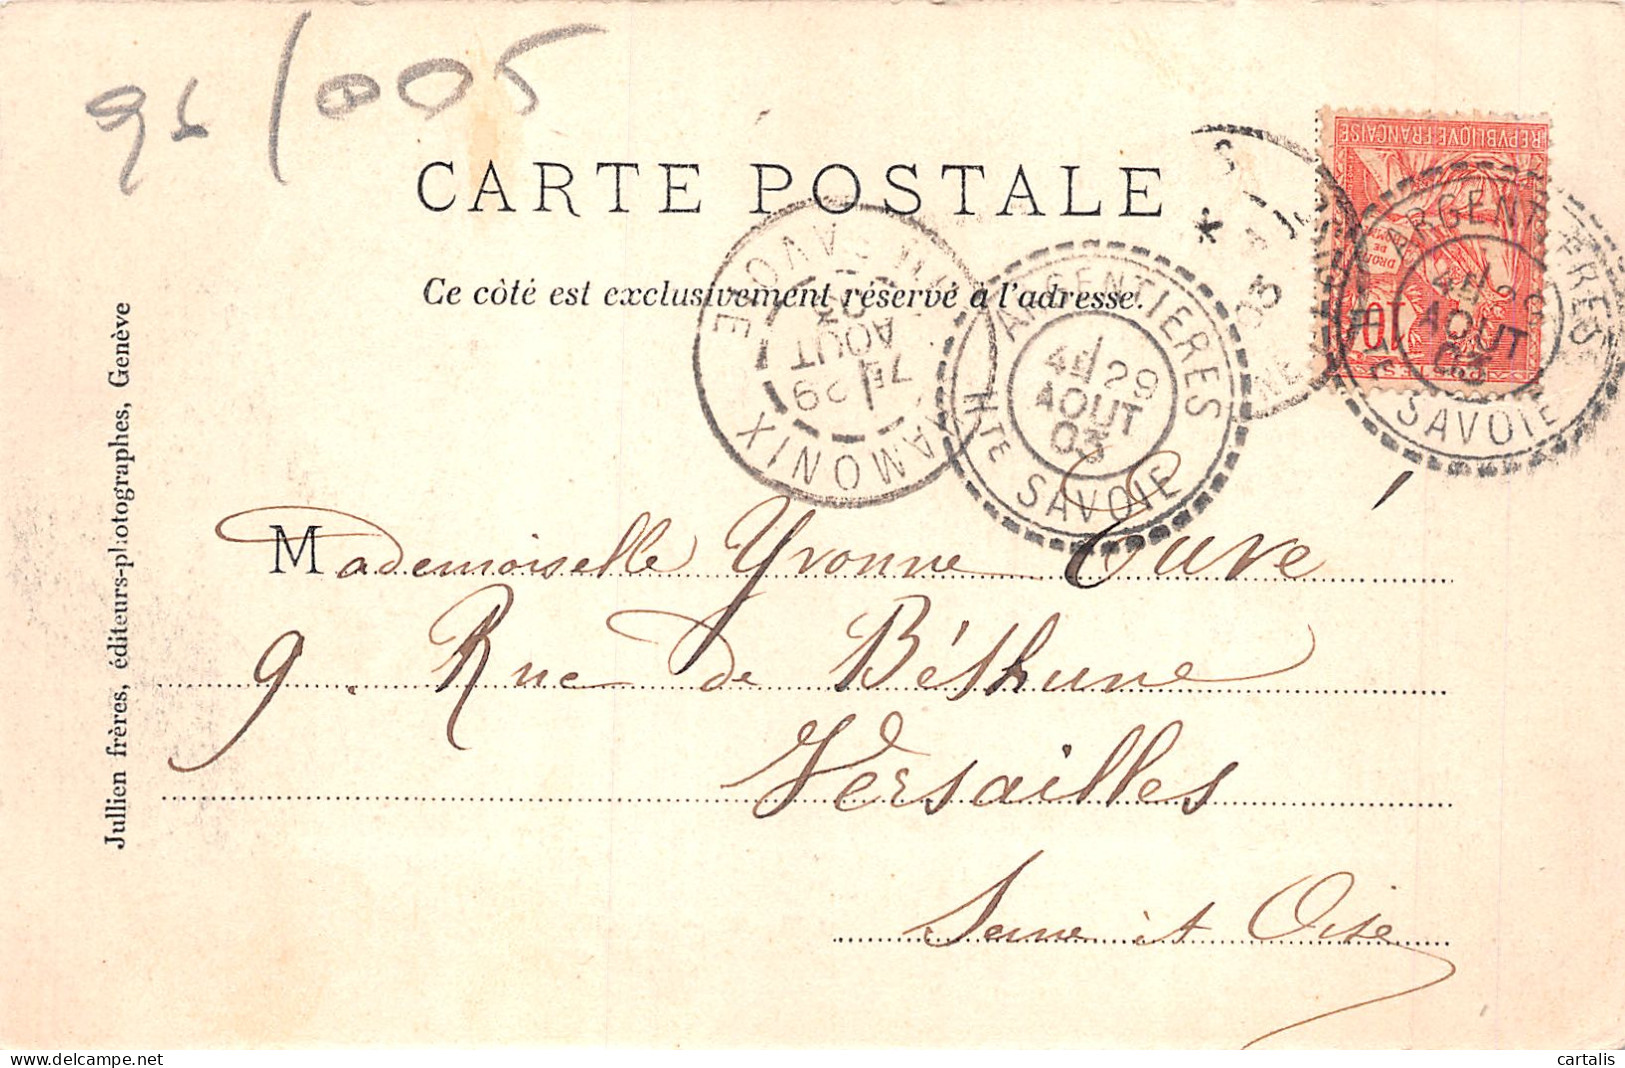 CARTE POSTALE
Ce côté est exclusivement réservé à l'adresse.
REPVBLIQVE FRANÇAISE
10
POSTES
CHAMONIX
HTE SAVOIE
7E 29
AOUT
03
ARGENTIERES
4E 29
AOUT
03
HTE SAVOIE
ARGENTIERES
4E 29
AOUT
03
SAVOIE
Mademoiselle Yvonne Cuvé
9. Rue de Béthune
Versailles
Seine et Oise
Jullien frères, éditeurs-photographes, Genève
cartalis